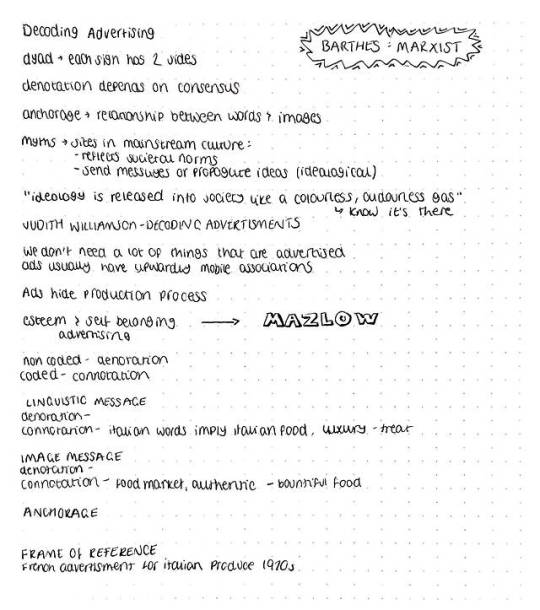 Decoding Advertising
BARTHES = MARXIST
dyad → each sign has 2 sides
denotation depends on consensus
anchorage → relationship between words & images
myths → sites in mainstream culture:
- reflects societal norms
- send messages or propogate ideas (idealogical)
"ideology is released into society like a colourless, oudourless gas"
↳ know it's there
JUDITH WILLIAMSON - DECODING ADVERTISMENTS
we don't need a lot of things that are advertised
ads usually have upwardly mobile associations
Ads hide production process
esteem & self belonging → MAZLOW
advertising
non coded - denotation
coded - connotation
LINGUISTIC MESSAGE
denotation -
connotation - italian words imply italian food, luxury - treat
IMAGE MESSAGE
denotation -
connotation - food market, authentic - bountiful food
ANCHORAGE
FRAME OF REFERENCE
French advertisment for italian produce 1970s